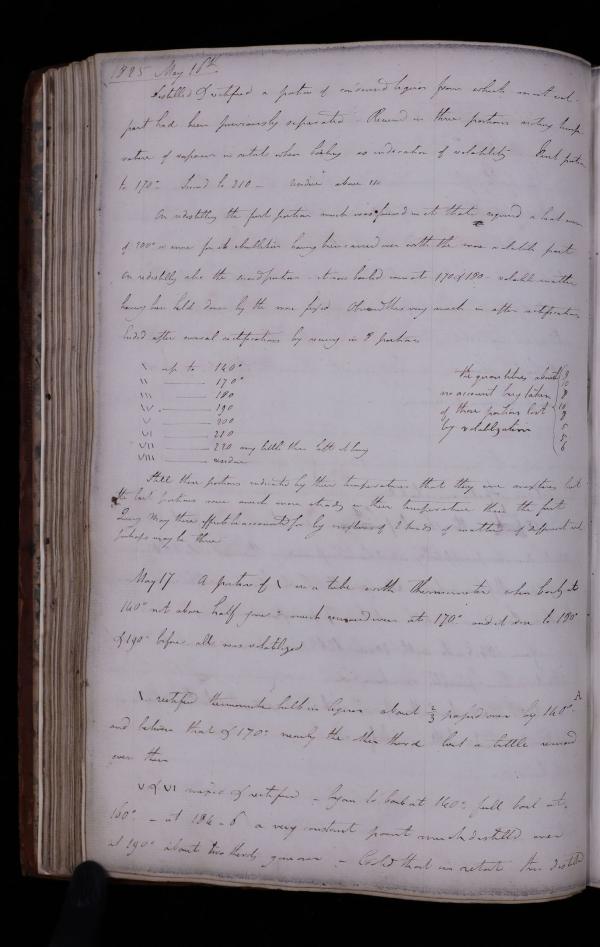 1825 May 16th
Distilled & rectified a portion of condensed liquor from which most vol-
part had been previously separated - Received in three portions noting temp-
rature of vapour in retort when boiling as indication of volatility First portion
to 170° Second to 210 - residue above
On redistilling the first portion much was found in it that required a heat
of 200° or more for its ebullition having been carried over with the more volatile part
On redistilly also the second portion it was boiled over at 170 & 180 - volatile matter
having been held down by the more fixed Observed this very much in after rectifications
Ended after several rectifications by receiving in 8 portions
\ up to 140° the quantities about 9
\\ 170° no account being taken 10
\\\ 180 of those portions lost 8
\V 190 by volatilization 10
V 200 8
V\ 210 5
V\\ 220 very little then left if any 5
V\\\ residue 6
Still these portions indicated by their temperatures that they were mixtures but
the last portions were much more steady in their temperature than the first
Query May these effects be accounted for by mixture of 2 kinds of matter of different vol
perhaps may be three
May 17 A portion of \ in a tube with thermometer when boily at
140° not above half gone - much remained over at 170° and it rose to 180°
& 190° before all was volatilized
\ rectified thermometer held in liquor about 2/3 passed over by 140° A
and between that & 170° nearly the other third but a little remained
over then
V & V\ mixed & rectified - Began to boil at 140° full boil at
160° - at 186 - 8 a very constant point much distilled over
at 190° about two thirds gone over - Cooled that in retort